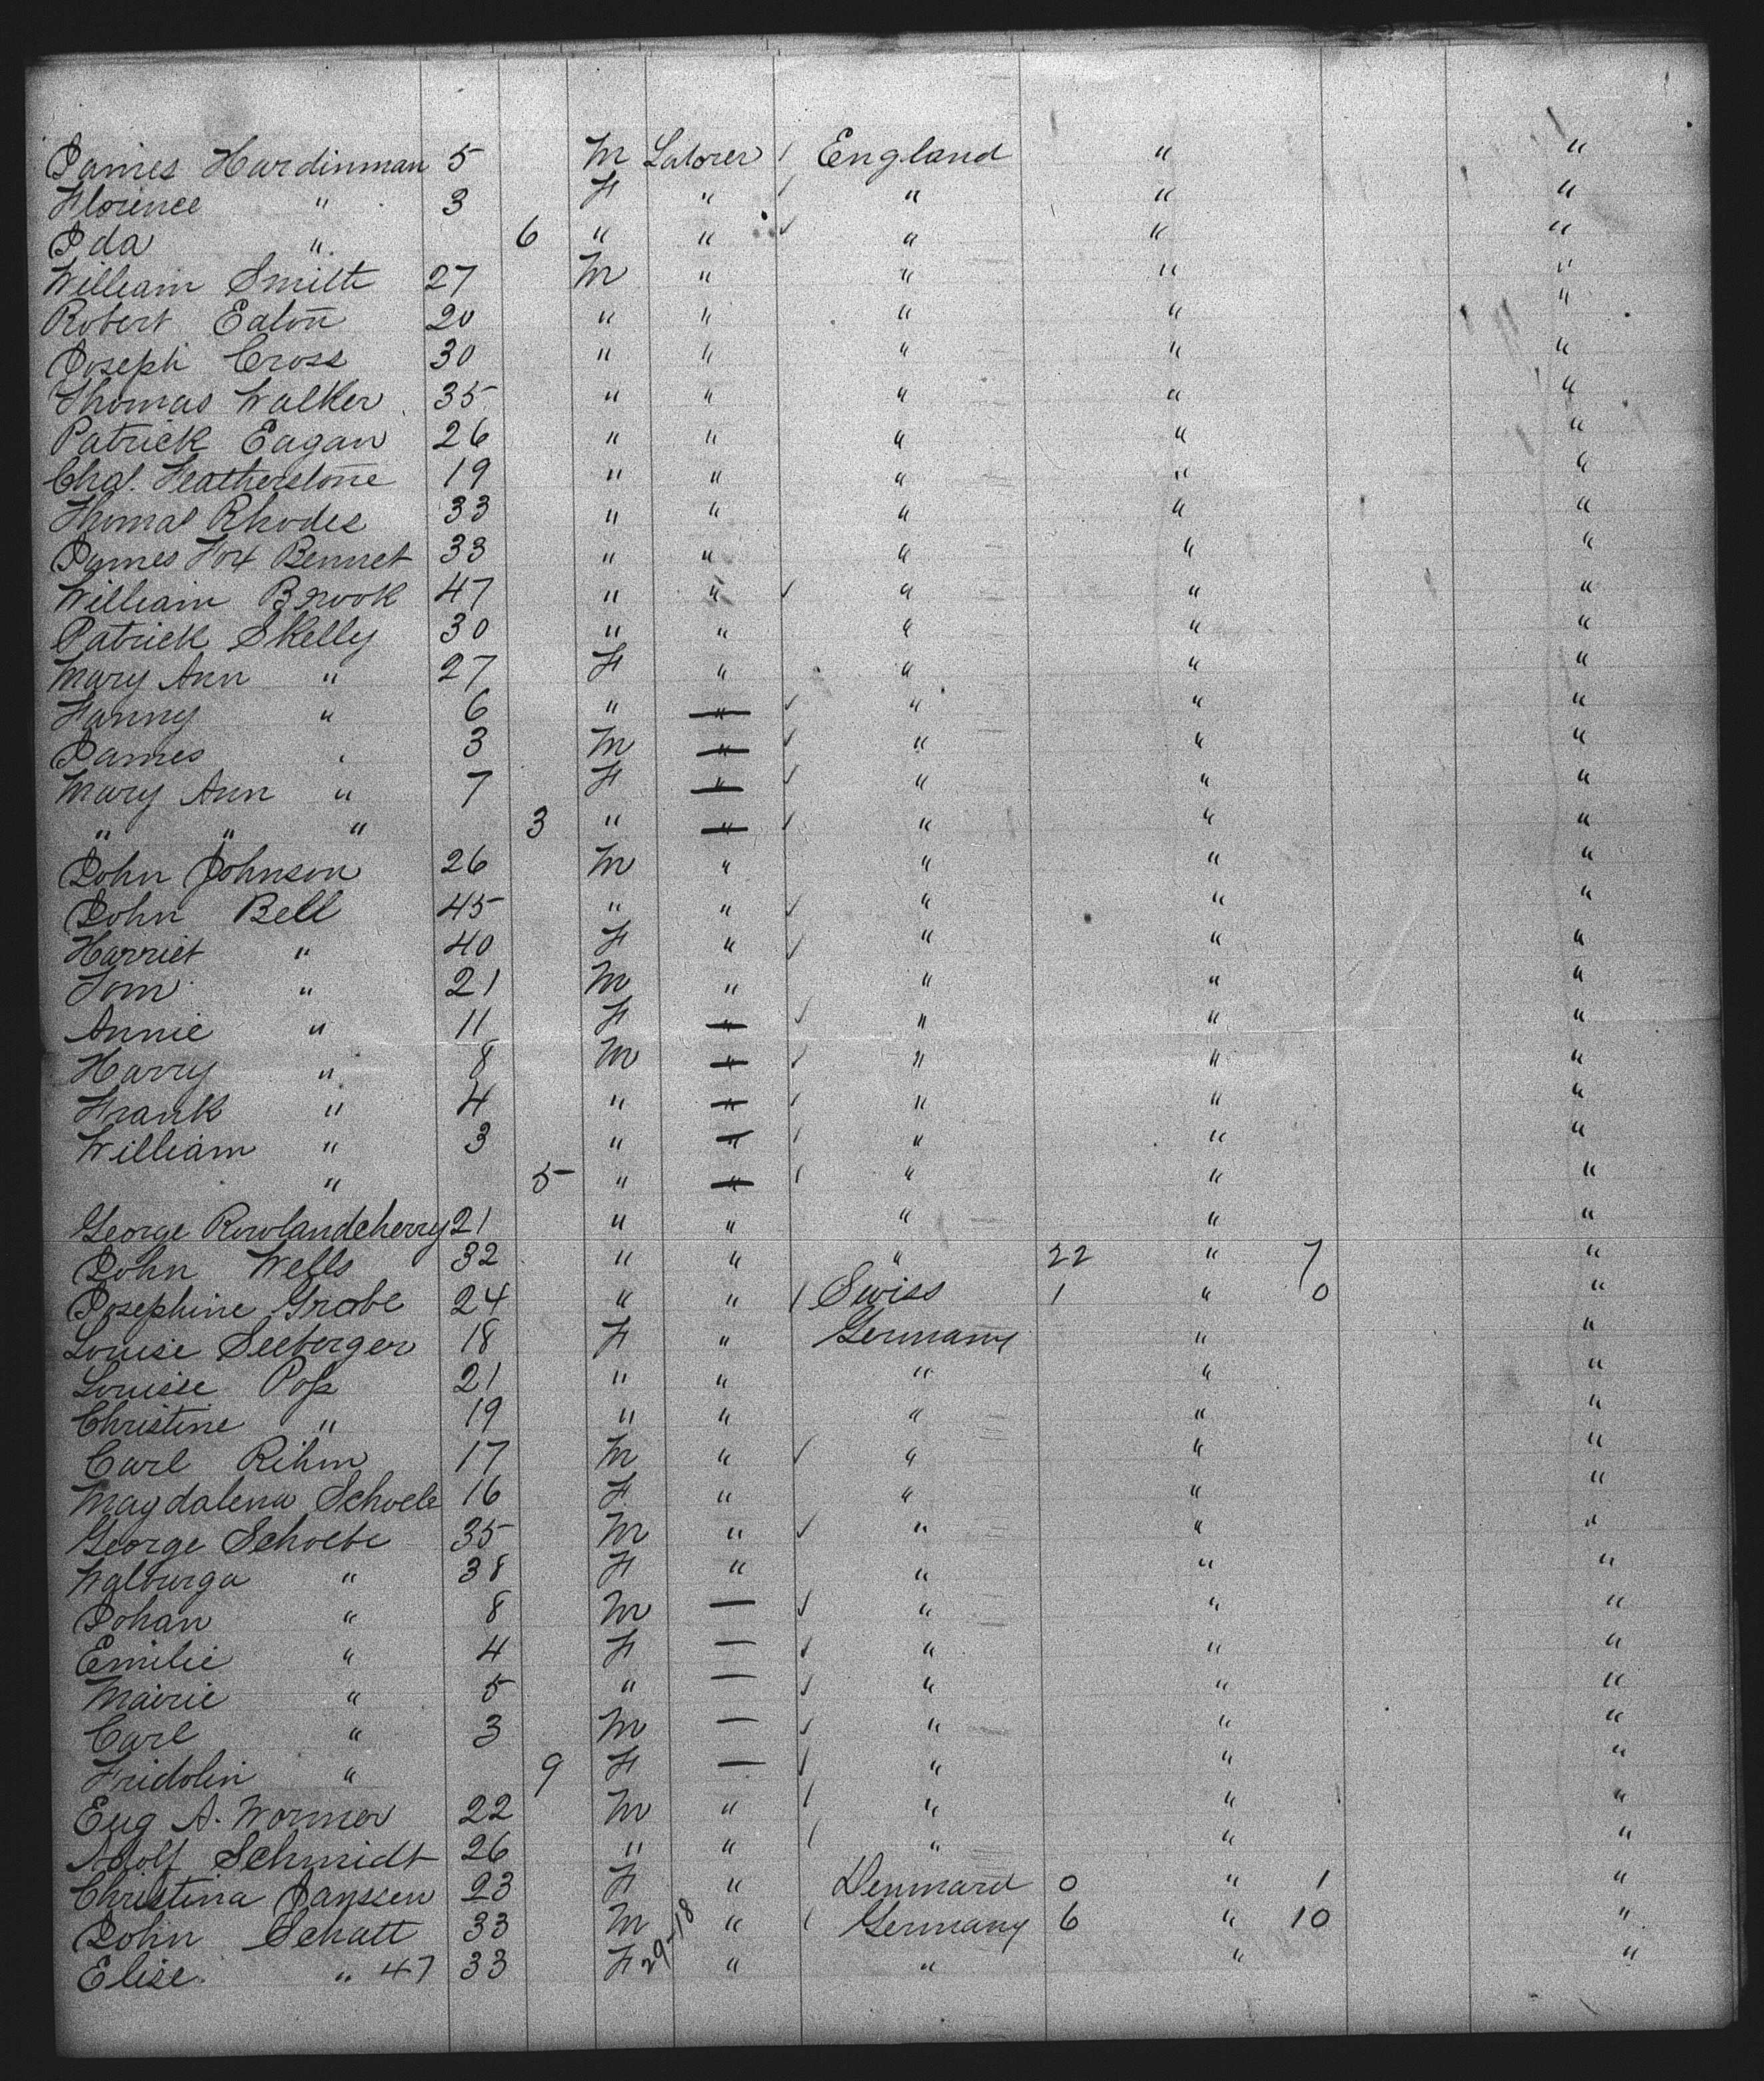 James Hardinman 5 M Laborer / England " "
Florence " 3 F " / " " "
Ida " 6 " " ✓ " " "
William Smith 27 M " " " "
Robert Eaton 20 " " " " "
Joseph Cross 30 " " " " "
Thomas Walker 35 " " " " "
Patrick Eagan 26 " " " " "
Chas. Featherstone 19 " " " " "
Thomas Rhodes 33 " " " " "
James Fox Bennet 33 " " " " "
William Brook 47 " " ✓ " " "
Patrick Skelly 30 " " " " "
Mary Ann " 27 F " " " "
Fanny " 6 " " ✓ " " "
James " 3 M " ✓ " " "
Mary Ann " 7 F " ✓ " " "
" " " 3 " " ✓ " " "
John Johnson 26 M " " " "
John Bell 45 " " ✓ " " "
Harriet " 40 F " ✓ " " "
Tom " 21 M " " " "
Annie " 11 F " ✓ " " "
Harry " 8 M " ✓ " " "
Frank " 4 " " / " " "
William " 3 " " / " " "
" 5 " " / " " "
George Rowlandcherry 21 " " " " "
John Wells 32 " " " 22 " 7 "
Josephine Grabe 24 " " / Swiss 1 " 0 "
Louise Seeberger 18 F " Germany " "
Louise Poss 21 " " " " "
Christine " 19 " " " " "
Carl Rihm 17 M " ✓ " " "
Magdalena Schoele 16 F " " " "
George Schoebe 35 M " ✓ " " "
Walburga " 38 F " " " "
Johan " 8 M — ✓ " " "
Emilie " 4 F — ✓ " " "
Mairie " 5 " — ✓ " " "
Carl " 3 M — ✓ " " "
Fridolin " 9 F — ✓ " " "
Eug A. Wormer 22 M " / " " "
Adolf Schmidt 26 " " / " " "
Christina Janssen 23 F " Denmard 0 " 1 "
John Schatt 33 M " / Germany 6 " 10 "
Elise " 47 33 F 29-18 " " " "